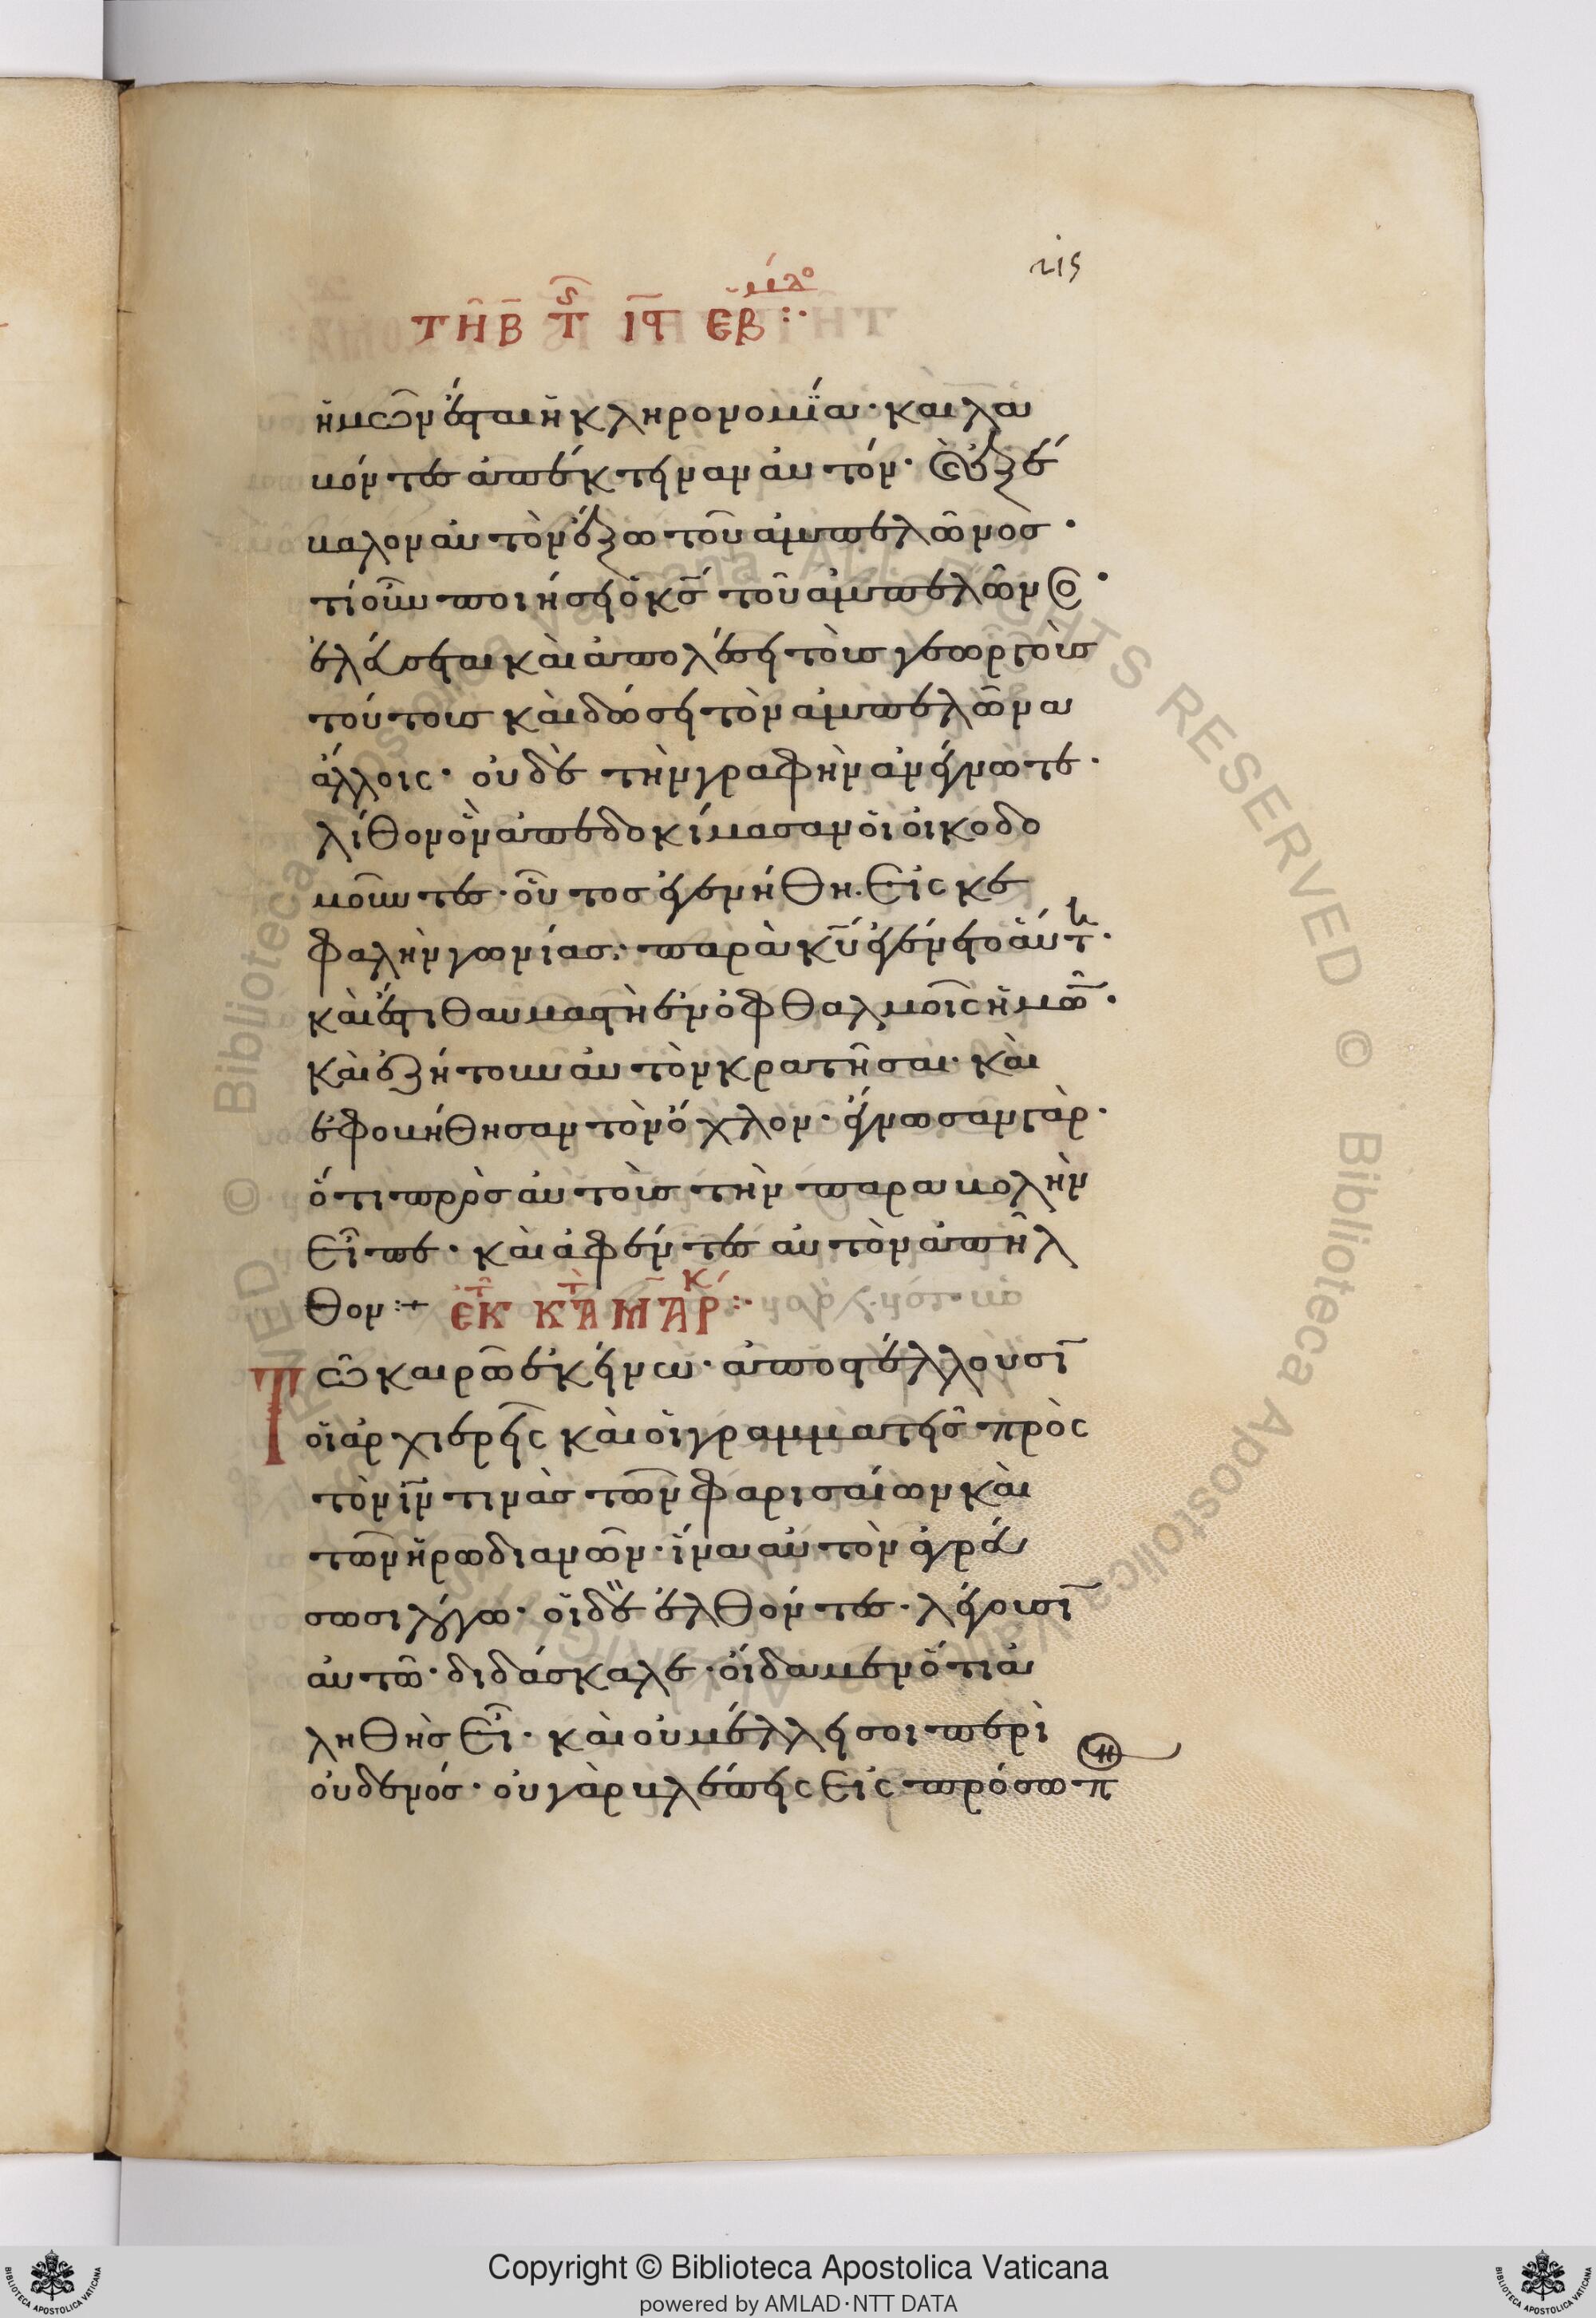 216
ΤΗ Β ΤΗϹ ΙϚ ΕΒΔΟΜΑ :·
ἡμῶν ἔσται ἡ κληρονομία· καὶ λα
βόντες ἀπέκτειναν αὐτόν· καὶ ἐξέ
βαλον αὐτὸν ἔξω τοῦ ἀμπελῶνος·
τί οὖν ποιήσει ὁ κσ τοῦ ἀμπελῶνος·
ἐλεύσεται καὶ ἀπολέσει τοὺς γεωργοὺς
τούτους καὶ δώσει τὸν ἀμπελῶνα
ἄλλοις· οὐδὲ τὴν γραφὴν ἀνέγνωτε·
λίθον ὃν ἀπεδοκίμασαν οἱ οἰκοδο
μοῦντες· οὗτος ἐγενήθη εἰς κε
φαλὴν γωνίας· παρὰ κυ ἐγένετο αὕτη·
καὶ ἔστι θαυμαστὴ ἐν ὀφθαλμοῖς ἡμῶν·
καὶ ἐζήτουν αὐτὸν κρατῆσαι· καὶ
ἐφοβήθησαν τὸν ὄχλον· ἔγνωσαν γὰρ·
ὅτι πρὸς αὐτοὺς τὴν παραβολὴν
εἶπε· καὶ ἀφέντες αὐτὸν ἀπῆλ
θον :+ ἐκ τοῦ κατὰ Μάρκ :·
Τῶ καιρῶ ἐκείνω· ἀποστέλλουσιν
οἱ ἀρχιερεῖς καὶ οἱ γραμματεῖς πρὸς
τὸν ιν τινὰς τῶν φαρισαίων καὶ
τῶν ἡρωδιανῶν· ἵνα αὐτὸν ἀγρεύ
σωσι λόγω· οἱ δὲ ἐλθόντες· λέγουσιν
αὐτῶ· διδάσκαλε· οἴδαμεν ὅτι ἀ
ληθὴς εἶ· καὶ οὐ μέλλει σοι περὶ
οὐδενός· οὐ γὰρ βλέπεις εἰς πρόσωπ
Copyright © Biblioteca Apostolica Vaticana
powered by AMLAD·NTT DATA